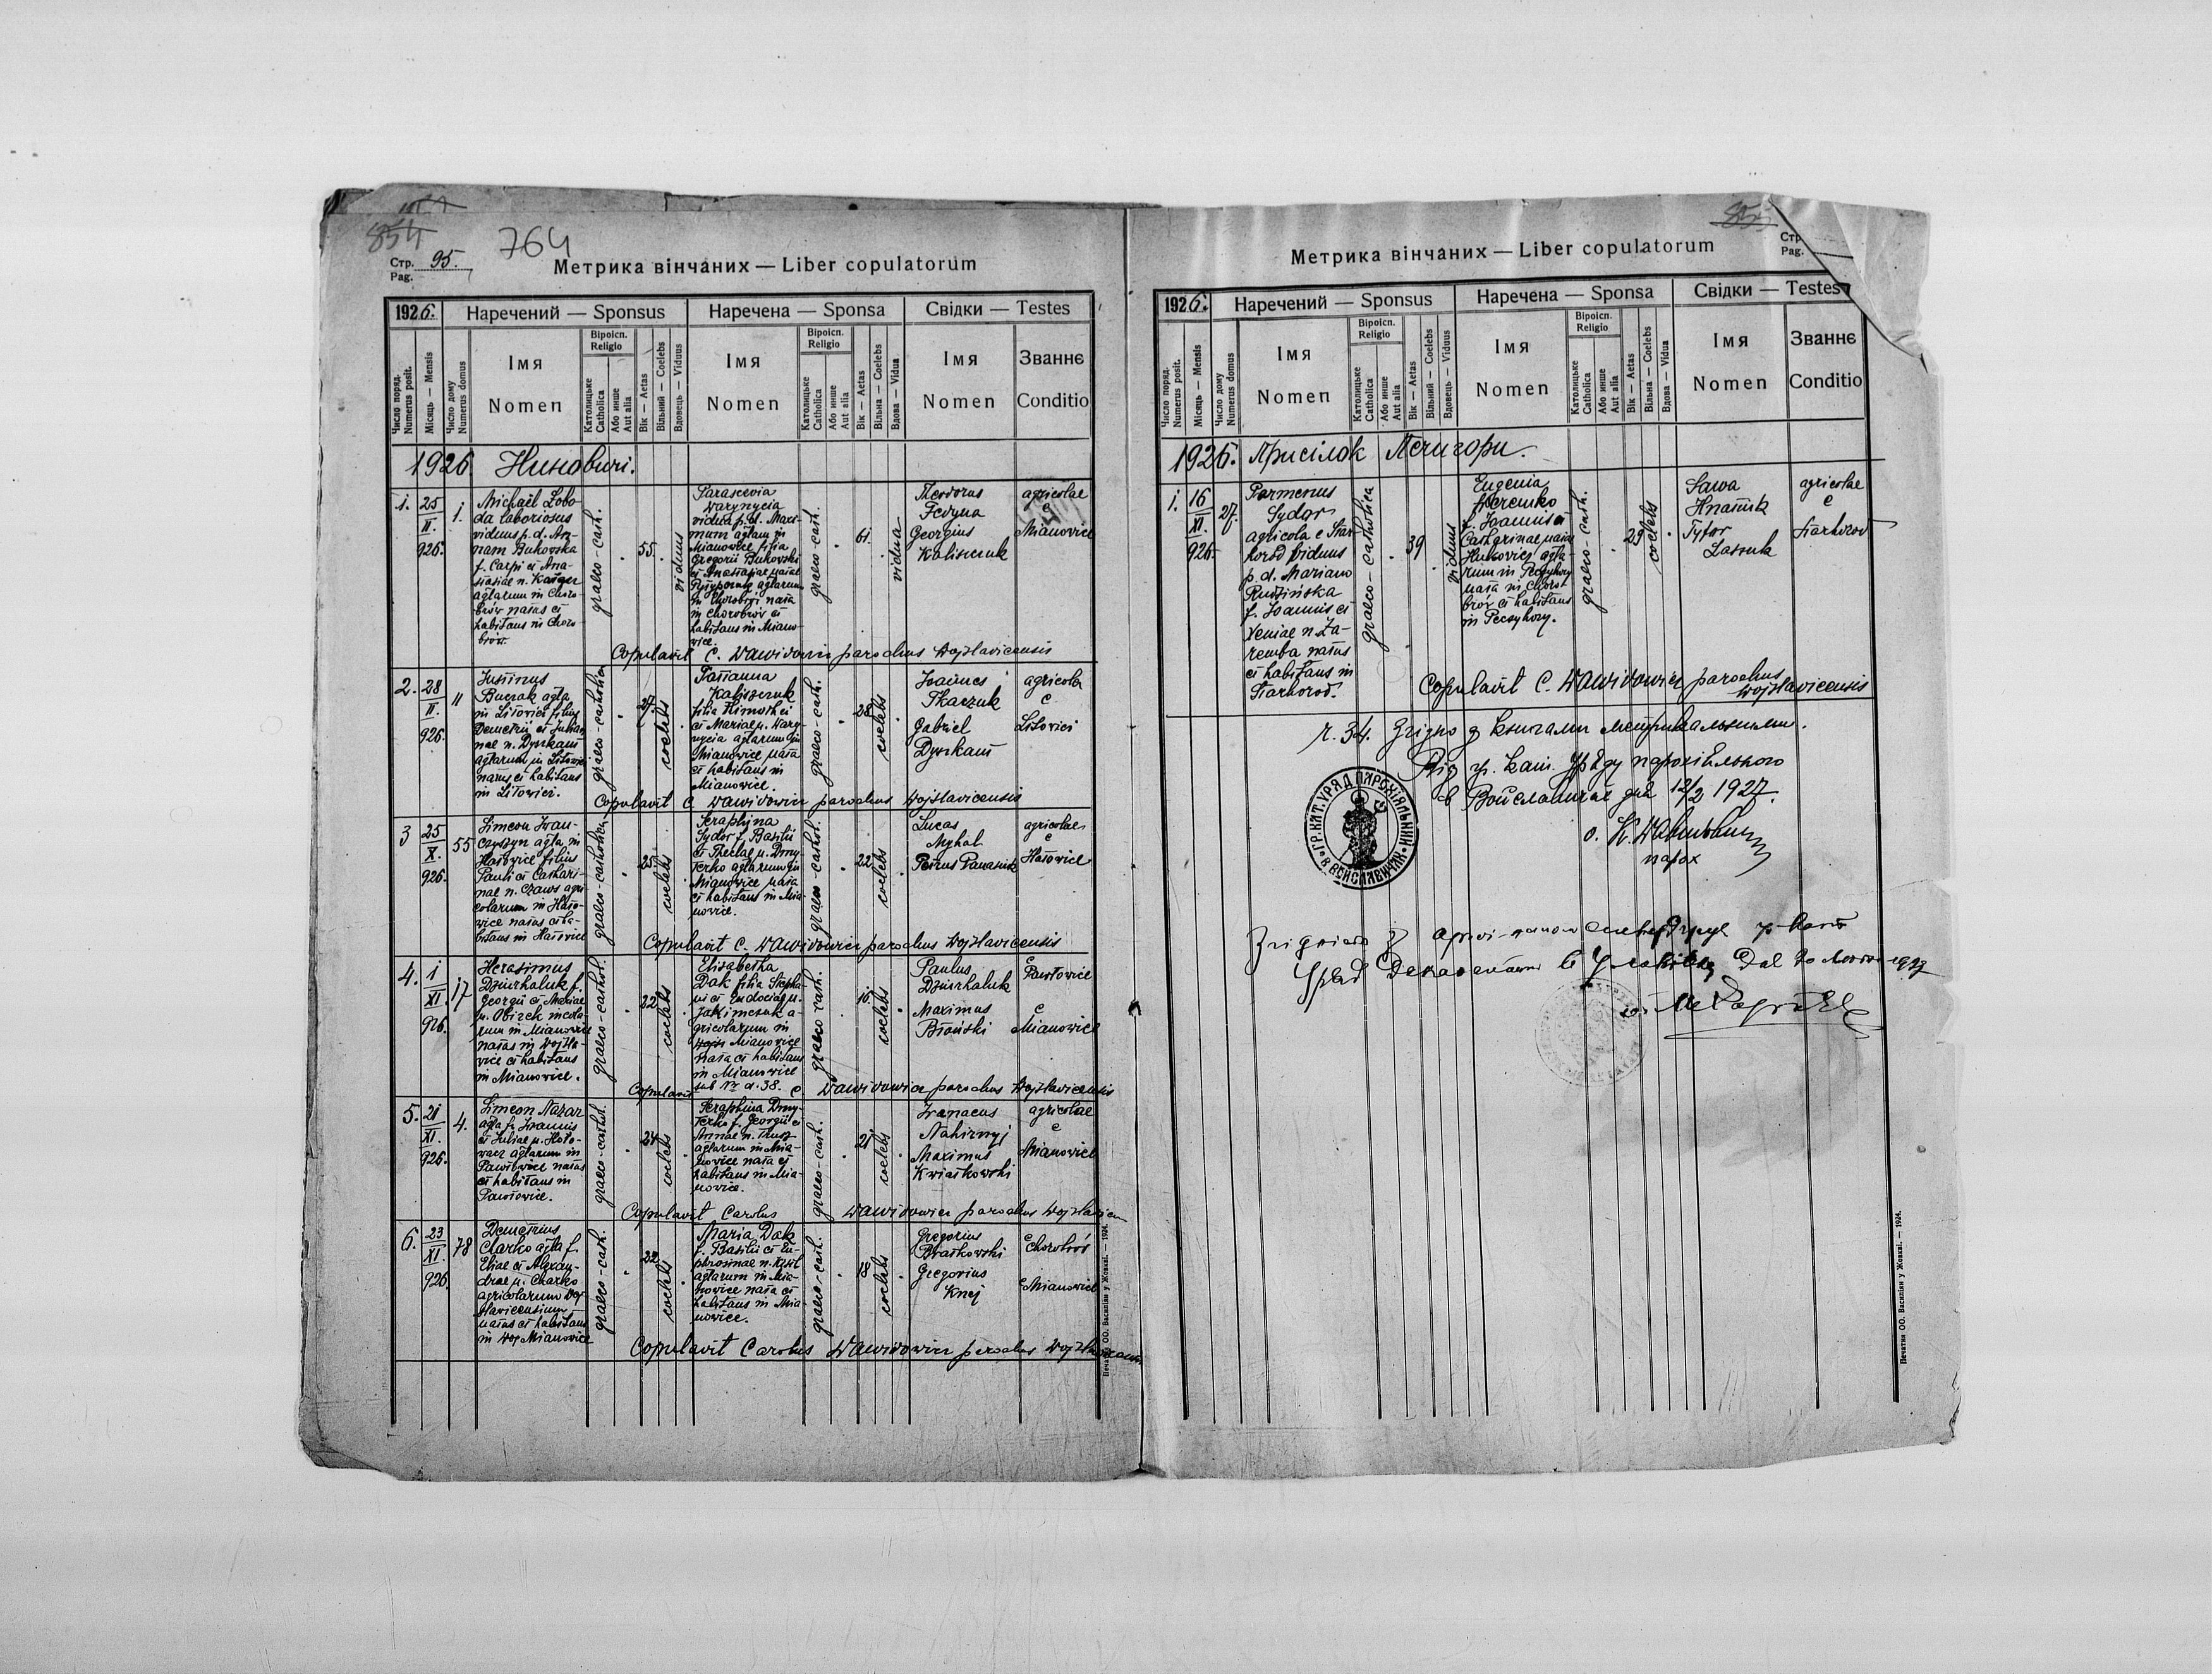 854
764
Стр. 95.
Pag.
Метрика вінчаних — Liber copulatorum
1926.
Наречений — Sponsus
Наречена — Sponsa
Свідки — Testes
Число поряд.
Numerus posit.
Місяць — Mensis
Число дому
Numerus domus
Імя
Nomen
Віроісп.
Religio
Католицьке
Catholica
Або инше
Aut alia
Вік — Aetas
Вільний — Coelebs
Вдовець — Viduus
Імя
Nomen
Віроісп.
Religio
Католицьке
Catholica
Або инше
Aut alia
Вік — Aetas
Вільна — Coelebs
Вдова — Vidua
Імя
Nomen
Званнє
Conditio
1926
1.
25
II.
926.
1.
Michaël Łobo-
da laboriosus
viduus p. d. An-
nam Bukovska
f. Carpi et Ana-
stasiae n. Kanger
agtarum in Choro-
brów natus et
habitans in Choro-
brów.
graeco-cath.
55.
viduus
Parascevia
Warynycia
vidua p. d. Maxi-
mum agtam in
Mianowice filia
Gregorii Bukovski
et Anastasiae natae
agtarum
in Chorobrów nata
in Chorobrów et
habitans in Miano-
wice.
graeco-cath.
61.
vidua
Theodorus
Fedyna
Georgius
Kaliszczuk
agricolae
e
Mianovice
Copulavit C. Wawidowicz parochus Wojslavicensis
2.
28
II.
926.
11
Justinus
Buczak agta
in Litovici filius
Demetrii et Julian-
nae n. Dyszkant
agtarum in Litovici
natus et habitans
in Litovici.
graeco-catholica
27.
coelebs
Tatianna
Kaliszczuk
filia Timothei
et Mariae n. Wary-
nycia agtarum in
Mianowice nata
et habitans in
Mianowice.
graeco-cath.
28
coelebs
Joannes
Tkaczuk
Gabriel
Dyszkant
agricolae
e
Litovici
Copulavit C. Wawidowicz parochus Wojslavicensis
3
25
X.
926.
55
Simeon Iwan-
czyszyn agta in
Hatowice filius
Pauli et Cathari-
nae n. Czaws agri-
colarum in Hato-
wice natus et ha-
bitans in Hatowice
graeco-catholica
25.
coelebs
Seraphina
Sydor f. Basilii
et Theclae n. Dmy-
terko agtarum in
Mianowice nata
et habitans in Mia-
nowice.
graeco-cathol.
22.
coelebs
Lucas
Myhal
Petrus Panasiuk
agricolae
e
Hatowice
Copulavit C. Wawidowicz parochus Wojslavicensis
4.
1
XI
926.
17
Herasimus
Dziurhaluk f.
Georgii et Mariae
n. Obizek incola-
rum in Mianowice
natus in Wojsla-
vice et habitans
in Mianowice.
graeco-cathol.
22.
coelebs
Elisabetha
Dak filia Stepha-
ni et Eudociae n.
Jakimczuk a-
gricolarum in
Mianowice
nata et habitans
in Mianowice
sub Nr d. 38.
graeco cath.
16.
coelebs
Paulus
Dziurhaluk
Maximus
Btoński
e
Pawtowice
e
Mianowice
Copulavit C. Wawidowicz parochus Wojslavicensis
5.
21
XI.
926.
4.
Simeon Nazar
agta f. Joannis
et Juliae n. Hoto-
wacz agtarum in
Pawtowice natus
et habitans in
Pawtowice.
graeco-cathol.
24
coelebs
Seraphina Dmy-
terko f. Georgii et
Annae n. Trusz
agtarum in Mia-
nowice nata et
habitans in Mia-
nowice.
graeco-cath.
21.
coelebs
Irenaeus
Nahirnyj
Maximus
Kwiatkowski
agricolae
e
Mianowice
Copulavit Carolus Wawidowicz parochus Wojslavicen
6.
23
XI.
926
78
Demetrius
Charko agta f.
Eliae et Alexan-
drae n. Charko
agricolarum Woj-
slavicensium
natus et habitans
in Mianowice
graeco-cath.
22
coelebs
Maria Dak
f. Basilii et Eu-
phrosinae n. Kisil
agtarum in Mia-
nowice nata et
habitans in Mia-
nowice.
graeco-cath.
18.
coelebs
Gregorius
Btatkowski
Gregorius
Knej
e Chorobrów
e Mianowice
Copulavit Carolus Wawidowicz parochus
Печатня ОО. Василіян у Жовкві. — 1924.
Метрика вінчаних — Liber copulatorum
Стр.
Pag.
1926.
Наречений — Sponsus
Наречена — Sponsa
Свідки — Testes
Число поряд.
Numerus posit.
Місяць — Mensis
Число дому
Numerus domus
Імя
Nomen
Віроісп.
Religio
Католицьке
Catholica
Або инше
Aut alia
Вік — Aetas
Вільний — Coelebs
Вдовець — Viduus
Імя
Nomen
Віроісп.
Religio
Католицьке
Catholica
Або инше
Aut alia
Вік — Aetas
Вільна — Coelebs
Вдова — Vidua
Імя
Nomen
Званнє
Conditio
1926. Присілок Печигори.
1.
16
XI.
926.
27.
Parmenus
Sydor
agricola e Star-
horod viduus
p. d. Mariano
Rudzińska
f. Joannis et
Xeniae n. Za-
remba natus
et habitans in
Starhorod.
graeco-catholica
39
viduus
Eugenia
f. Joannis et
Catharinae natae
Hukovicz agta-
rum in Peczyhory
nata in Choro-
brów et habitans
in Peczyhory.
graeco-cath.
29
coelebs
Sawa
Hnatiuk
Tytor
agricolae
e
Starhorod
Copulavit C. Wawidowicz parochus
Wojslavicensis
ч. 34. Згідно з книгами метрикальними.
Від гр. кат. Уряду парохіяльного
в Войславичах дня 12/2 1927.
парох
ГР. КАТ. УРЯД ПАРОХІЯЛЬНИЙ В ВОЙСЛАВИЧАХ
Печатня ОО. Василіян у Жовкві. — 1924.